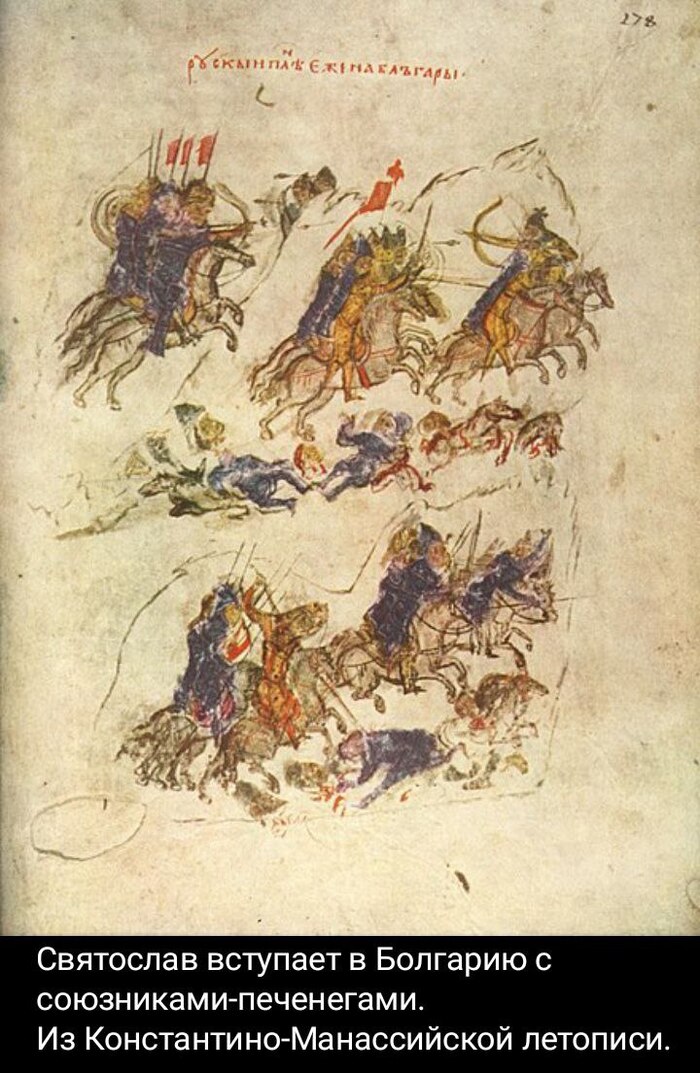 178
рꙋскыи плѣⷩ еже на блъгары·
Святослав вступает в Болгарию с
союзниками-печенегами.
Из Константино-Манассийской летописи.